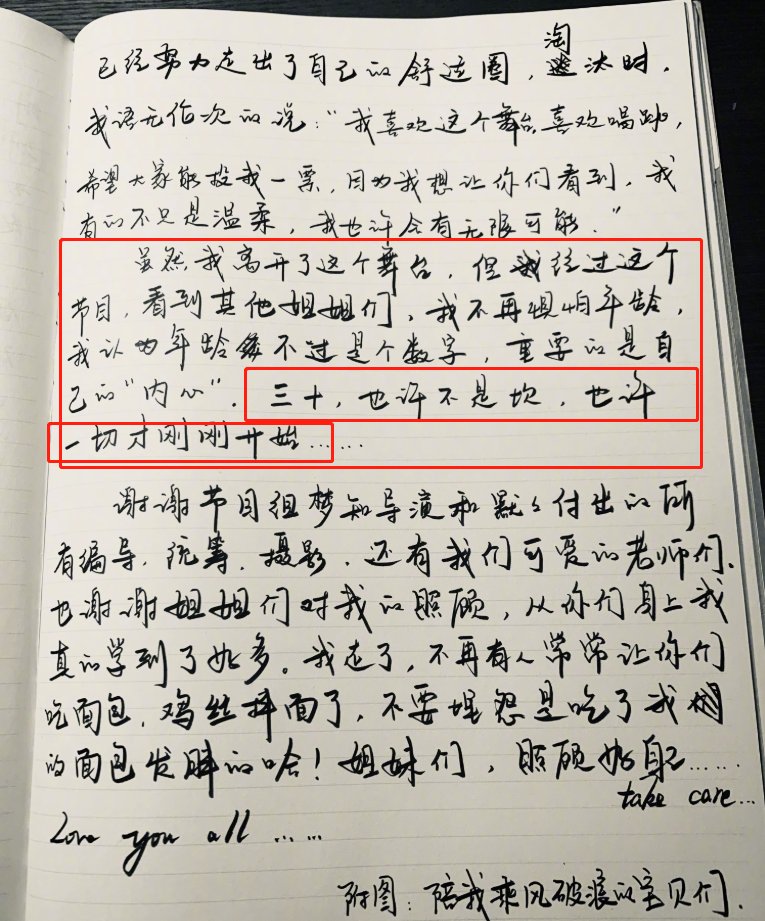 已经努力走出了自己的舒适圈，淘汰时，
我语无伦次的说："我喜欢这个舞台，喜欢唱跳，
希望大家能投我一票，因为我想让你们看到，我
有的不只是温柔，我也许会有无限可能。"
虽然我离开了这个舞台，但我经过这个
节目，看到其他姐姐们，我不再惧怕年龄，
我认为年龄不过是个数字，重要的是自
己的"内心"。三十，也许不是坎，也许
一切才刚刚开始……
谢谢节目组梦知导演和默々付出的所
有编导，统筹，摄影，还有我们可爱的老师们。
也谢谢姐姐们对我的照顾，从你们身上我
真的学到了好多。我走了，不再有人常常让你们
吃面包，鸡丝拌面了，不要埋怨是吃了我
的面包发胖的哈！姐妹们，照顾好自己……
take care...
Love you all ……
附图：陪我乘风破浪的宝贝们.